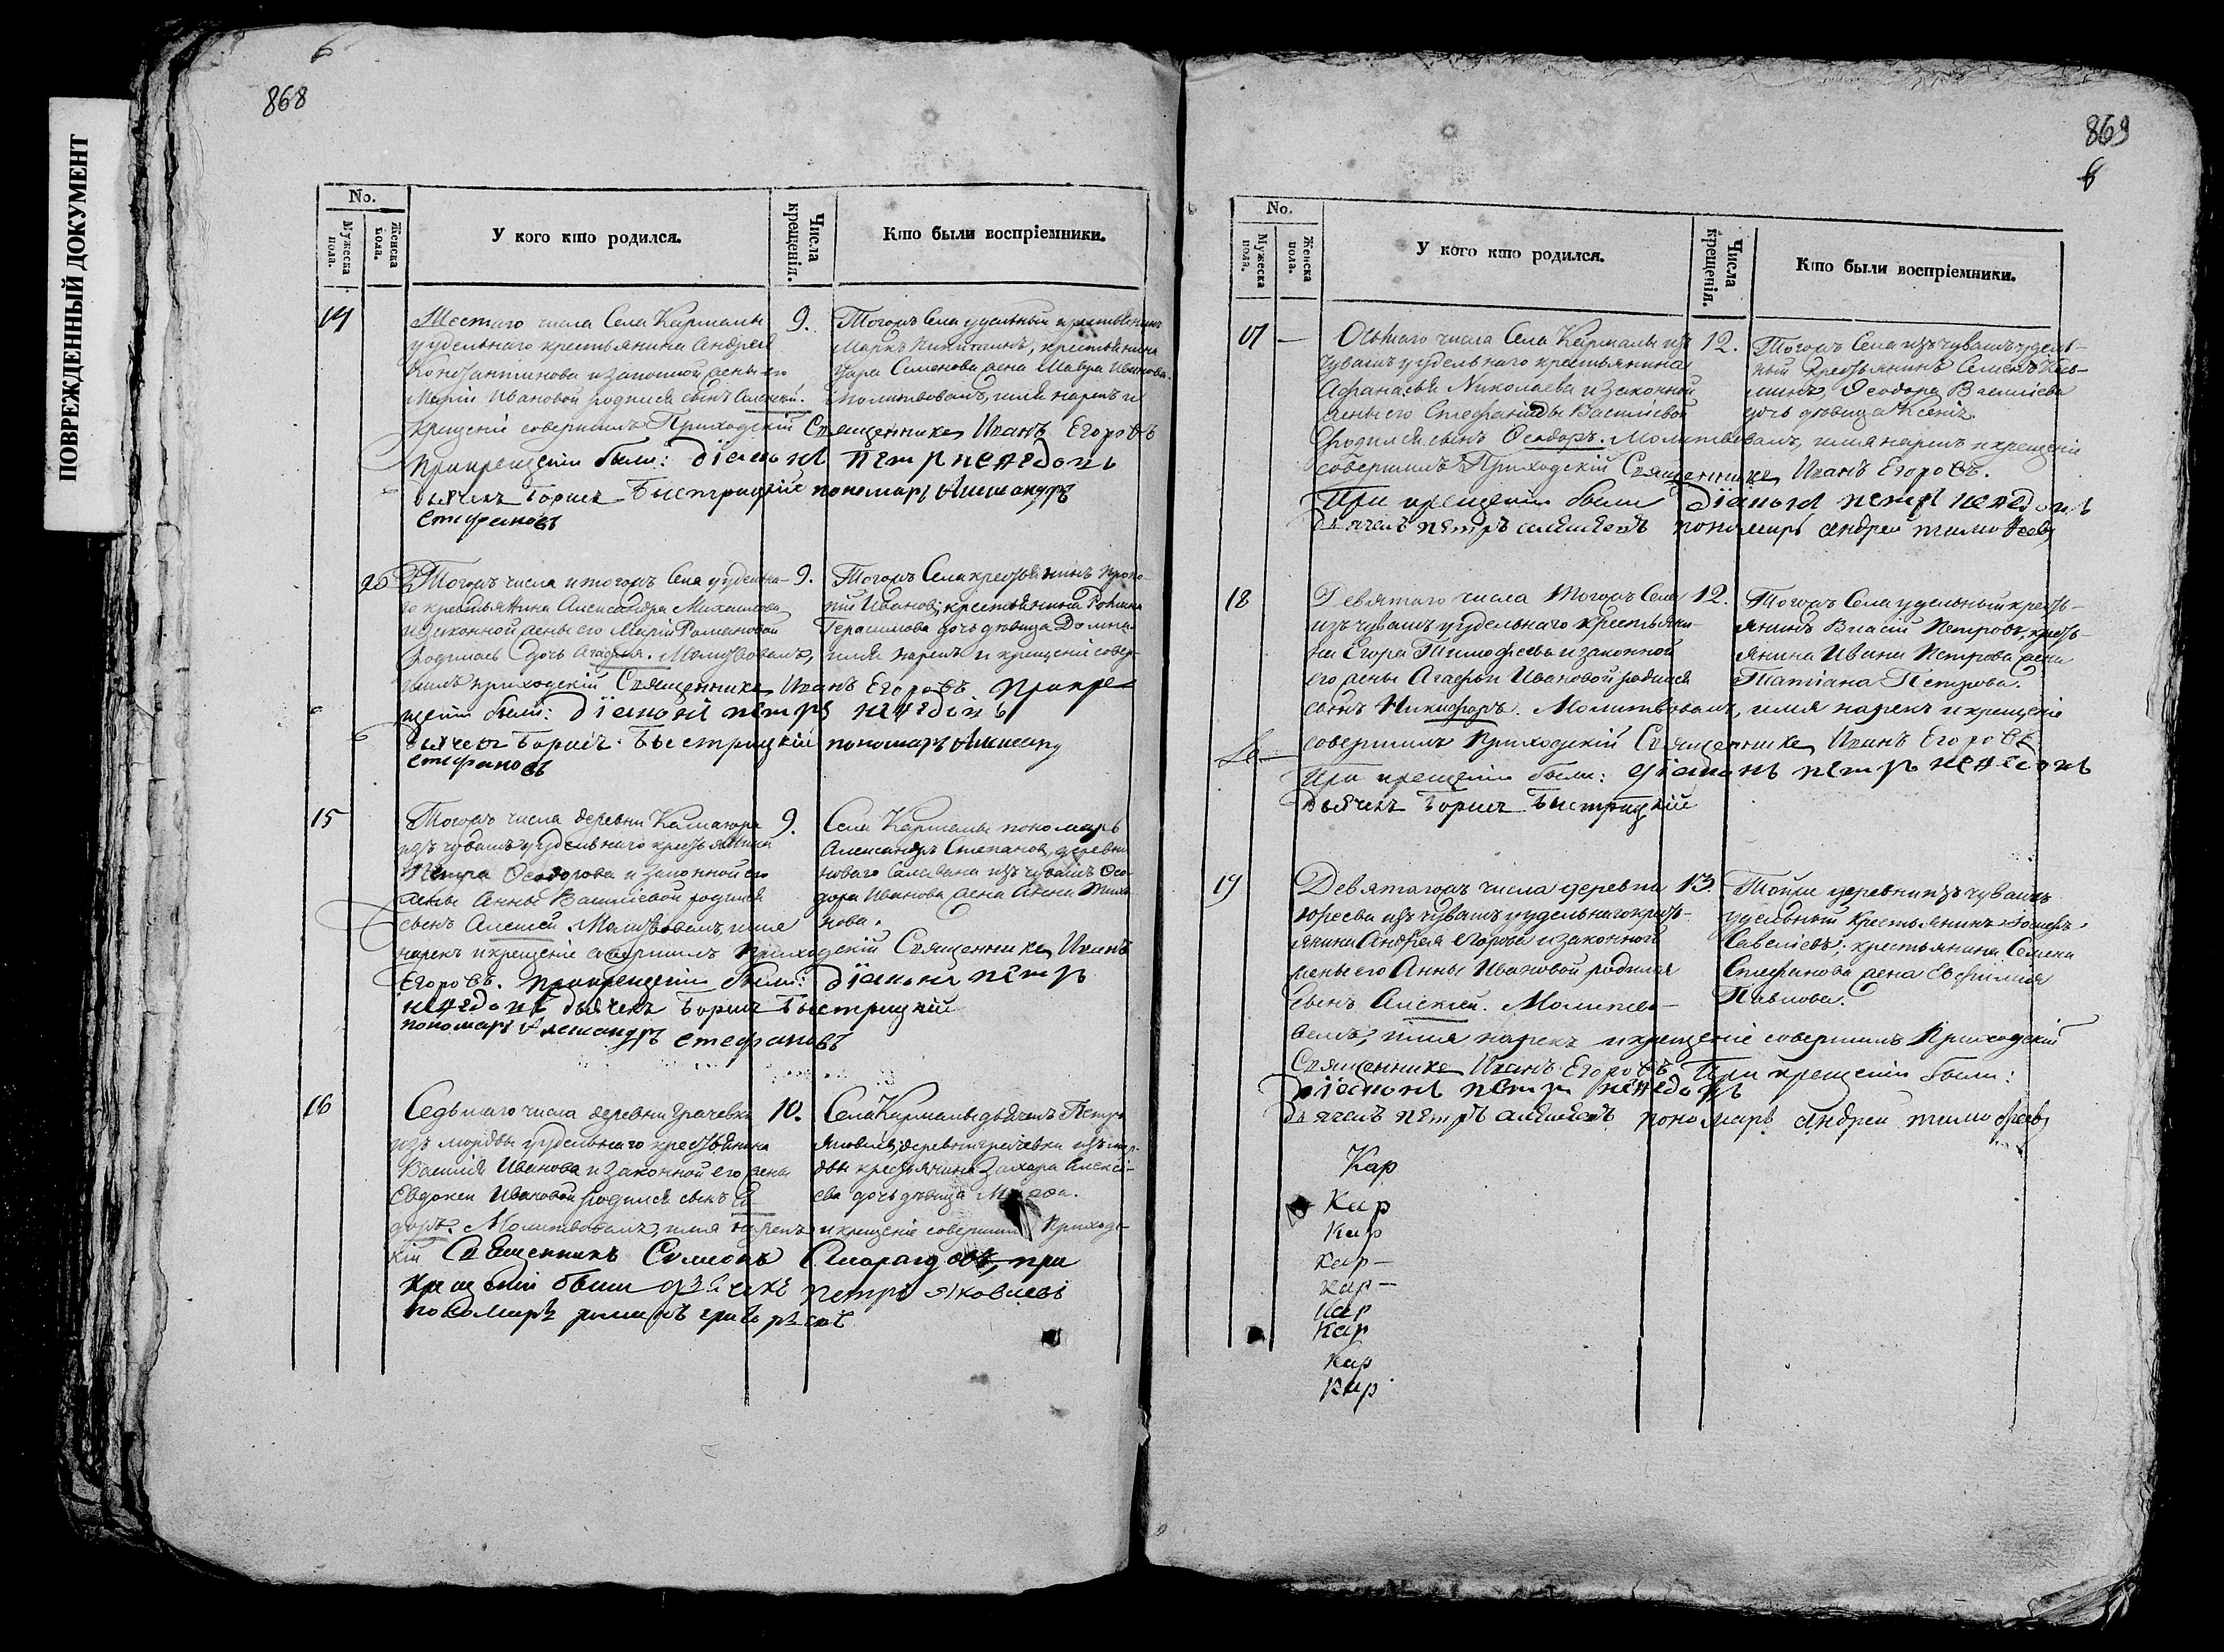 ПОВРЕЖДЕННЫЙ ДОКУМЕНТ
6
868
No.
Мужеска пола.
Женска пола.
У кого кто родился.
Числа крещенія.
Кто были воспріемники.
14
Шестаго числа Села Кармалы
у удельнаго крестьянина Андрея
Константинова и законной жены его
Маріи Ивановой родился сынъ Алексѣй.
9.
Тогожъ Села удельный крестьянинъ
Маркъ Никитинъ, крестьянина
Семенова жена Мавра Иванова.
Молитвовалъ, имя нарекъ и
крещеніе совершилъ Приходскій Священникъ Иванъ Егоровъ
При крещеніи были: діаконъ петръ
дьячекъ Борисъ Быстрицкій пономарь Александръ
Стефановъ
20
Тогожъ числа и тогожъ Села у удельна-
го крестьянина Александра Михайлова
и законной жены его Маріи Романовой
родилась дочь Агафія. Молитвовалъ,
9.
Тогожъ Села крестьянинъ Проко-
пій Ивановъ; крестьянина Романа
Герасимова дочь дѣвица Домна.
имя нарекъ и крещеніе совер-
шилъ приходскій Священникъ Иванъ Егоровъ. При кре-
щеніи были: діаконъ петръ
дьячекъ Борисъ Быстрицкій пономарь
Стефановъ
15
Тогожъ числа деревни
изъ чувашъ у удельнаго крестьянина
Петра Ѳеодорова и законной его
жены Анны Васильевой родился
сынъ Алексѣй. Молитвовалъ, имя
9.
Села Кармалы пономарь
Александръ Степановъ, деревни
новаго изъ чувашъ Ѳео-
дора Иванова жена Анна
нова.
нарекъ и крещеніе совершилъ Приходскій Священникъ Иванъ
Егоровъ. При крещеніи были: діаконъ петръ
дьячекъ Борисъ Быстрицкій
пономарь Александръ Стефановъ
16
Седьмаго числа деревни Грачевки
изъ мордвы у удельнаго крестьянина
Василія Иванова и законной его жены
Евдокеи Ивановой родился сынъ
10.
Села Кармалы дьячекъ Петръ
Яковлевъ; деревни грачевки изъ мор-
двы крестьянина Захара Алексѣ-
ева дочь дѣвица
доръ. Молитвовалъ, имя нарекъ и крещеніе совершилъ Приходс-
кій Священникъ Симеонъ Смарагдовъ, при
крещеніи были дьячекъ петръ яковлевъ
пономарь романъ
869
6
No.
Мужеска пола.
Женска пола.
У кого кто родился.
Числа крещенія.
Кто были воспріемники.
17
Осьмаго числа Села Кармалы изъ
чувашъ у удельнаго крестьянина
Афанасья Николаева и законной
жены его Стефаниды Васильевой
12.
Тогожъ Села изъ чувашъ удель-
ный крестьянинъ Семенъ
Ѳеодора Васильева
дочь дѣвица Ксенія.
родился сынъ Ѳеодоръ. Молитвовалъ, имя нарекъ и крещеніе
совершилъ Приходскій Священникъ Иванъ Егоровъ.
При крещеніи были діаконъ петръ
дьячекъ петръ пономарь андрей тимоѳеевъ
18
Девятаго числа Тогожъ Села
изъ чувашъ у удельнаго крестьяни-
на Егора Тимофеева и законной
его жены Агафьи Ивановой родился
12.
Тогожъ Села удельный кресть-
янинъ Власій Петровъ, кресть-
янина Ивана Петрова жена
Татіана Петрова.
сынъ Никифоръ. Молитвовалъ, имя нарекъ и крещеніе
совершилъ Приходскій Священникъ Иванъ Егоровъ
При крещеніи были: діаконъ петръ
дьячекъ Борисъ Быстрицкій
19
Девятагожъ числа деревни
изъ чувашъ у удельнаго кресть-
янина Андрея Егорова и законной
жены его Анны Ивановой родился
сынъ Алексѣй. Молитво-
13.
Тойже деревни изъ чувашъ
удельный крестьянинъ
Савельевъ; крестьянина Семена
Стефанова жена Евфимія
Павлова.
валъ, имя нарекъ и крещеніе совершилъ Приходскій
Священникъ Иванъ Егоровъ При крещеніи были:
діаконъ петръ
дьячекъ петръ пономарь андрей тимофеевъ
Кар
Кар
Кар
Кар -
Кар -
Кар
Кар
Кар
Кар